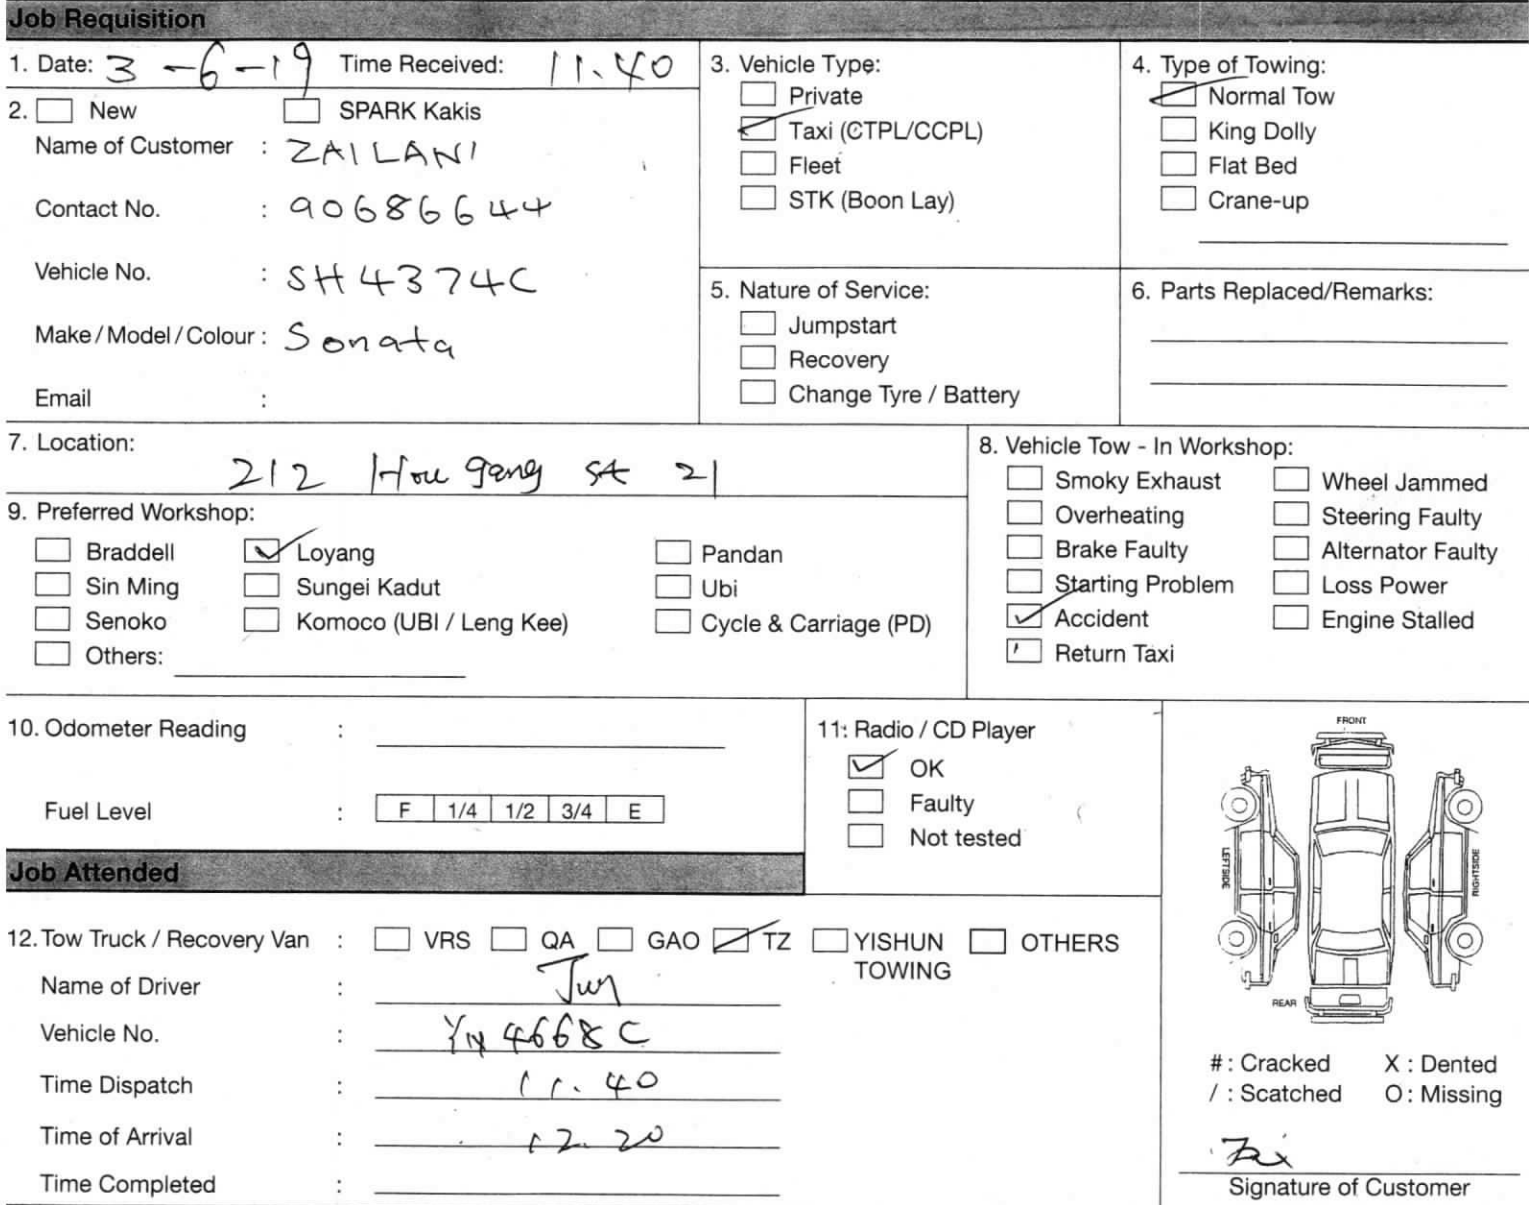 Job Requisition
1. Date: 3-6-19 Time Received: 11.40
2. New SPARK Kakis
Name of Customer : ZAILANI
Contact No. : 90686644
Vehicle No. : SH4374C
Make / Model / Colour : Sonata
Email :
3. Vehicle Type:
Private
Taxi (CTPL/CCPL)
Fleet
STK (Boon Lay)
4. Type of Towing:
Normal Tow
King Dolly
Flat Bed
Crane-up
5. Nature of Service:
Jumpstart
Recovery
Change Tyre / Battery
6. Parts Replaced/Remarks:
7. Location:
212 Hougang st 21
8. Vehicle Tow - In Workshop:
Smoky Exhaust Wheel Jammed
Overheating Steering Faulty
Brake Faulty Alternator Faulty
Starting Problem Loss Power
Accident Engine Stalled
Return Taxi
9. Preferred Workshop:
Braddell Loyang Pandan
Sin Ming Sungei Kadut Ubi
Senoko Komoco (UBI / Leng Kee) Cycle & Carriage (PD)
Others:
10. Odometer Reading :
Fuel Level : F 1/4 1/2 3/4 E
11: Radio / CD Player
OK
Faulty
Not tested
FRONT
LEFTSIDE
RIGHTSIDE
REAR
#: Cracked X : Dented
/ : Scatched O : Missing
Signature of Customer
Job Attended
12. Tow Truck / Recovery Van : VRS QA GAO TZ YISHUN TOWING OTHERS
Name of Driver :
Vehicle No. : YN 4668C
Time Dispatch : 11.40
Time of Arrival : 12.20
Time Completed :